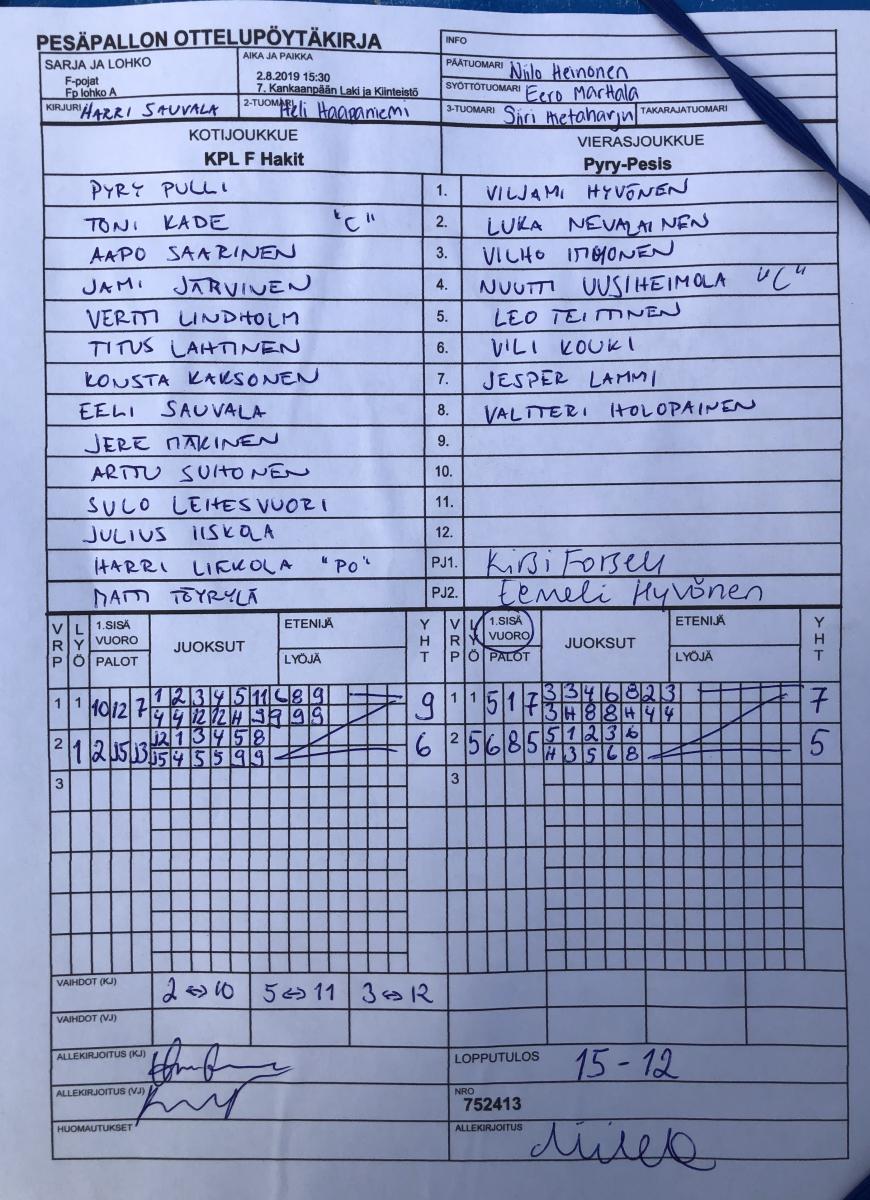 PESÄPALLON OTTELUPÖYTÄKIRJA
SARJA JA LOHKO
F-pojat
Fp lohko A
AIKA JA PAIKKA
2.8.2019 15:30
7. Kankaanpään Laki ja Kiinteistö
INFO
PÄÄTUOMARI Niilo Heinonen
SYÖTTÖTUOMARI Eero Marttala
KIRJURI HARRI SAUVALA
2-TUOMARI Heli Haapaniemi
3-TUOMARI Siiri Metaharju
TAKARAJATUOMARI
KOTIJOUKKUE
KPL F Hakit
VIERASJOUKKUE
Pyry-Pesis
PYRY PULLI 1. VILJAMI HYVÖNEN
TONI KADE "C" 2. LUKA NEVALAINEN
AAPO SAARINEN 3. VILHO
JAMI JÄRVINEN 4. NUUTTI UUSIHEIMOLA "C"
VERTTI LINDHOLM 5. LEO TEITTINEN
TITUS LAHTINEN 6. VILI KOUKI
KONSTA KAKSONEN 7. JESPER LAMMI
EELI SAUVALA 8. VALTTERI HOLOPAINEN
JERE MÄKINEN 9.
ARTTU SUHONEN 10.
SULO LEHESVUORI 11.
JULIUS IISKOLA 12.
HARRI LIEKOLA "PO" PJ1. Kirsi Forsell
MATTI TÖYRYLÄ PJ2. Eemeli Hyvönen
VRP LYÖ 1.SISÄ VUORO PALOT JUOKSUT ETENIJÄ LYÖJÄ YHT VRP LYÖ 1.SISÄ VUORO PALOT JUOKSUT ETENIJÄ LYÖJÄ YHT
1 1 10 12 7 1 2 3 4 5 11 6 8 9 9 1 1 5 1 7 3 3 4 6 8 2 3 7
4 4 12 12 H 9 9 9 9 3 H 8 8 H 4 4
2 1 2 15 13 12 1 3 4 5 8 6 2 5 6 8 5 5 1 2 3 6 5
15 4 5 5 9 9 H 3 5 6 8
3 3
VAIHDOT (KJ) 2 ⇔ 10 5 ⇔ 11 3 ⇔ 12
VAIHDOT (VJ)
ALLEKIRJOITUS (KJ)
LOPPUTULOS 15 - 12
ALLEKIRJOITUS (VJ)
NRO
752413
HUOMAUTUKSET
ALLEKIRJOITUS